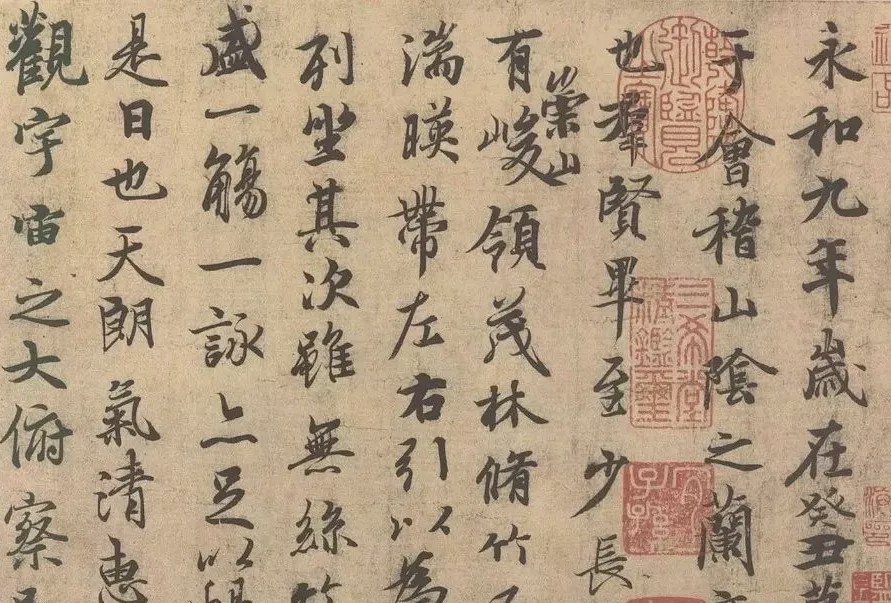 永和九年歲在癸丑
于會稽山陰之蘭
也羣賢畢至少長
有崇山峻領茂林脩竹
湍暎帶左右引以為
列坐其次雖無絲竹
盛一觴一詠亦足以暢
是日也天朗氣清惠
觀宇宙之大俯察
三希堂精鑑璽
宜子孫